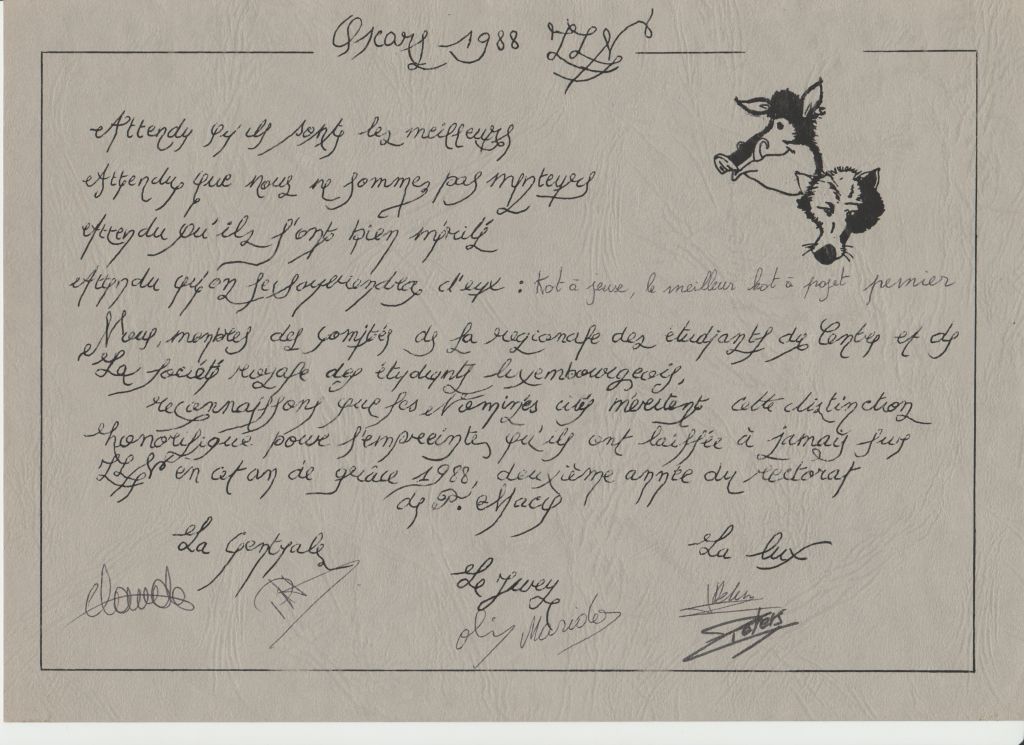 Oscars 1988 LLN
Attendu qu'ils sont les meilleurs
Attendu que nous ne sommes pas menteurs
Attendu qu'ils l'ont bien mérité
Attendu qu'on se souviendra d'eux : Kot à jeux, le meilleur kot à projet premier
Nous, membres des comités de la regionale des étudiants du Centre et de
La Société royale des étudiants luxembourgeois,
reconnaissons que les Nominés cités méritent cette distinction
honorifique pour l'empreinte, qu'ils ont laissée à jamais sur
LLN en cet an de grâce 1988, deuxième année du rectorat
de P. Macq
La Centrale
La Lux
Le Jury
Claude
Peters